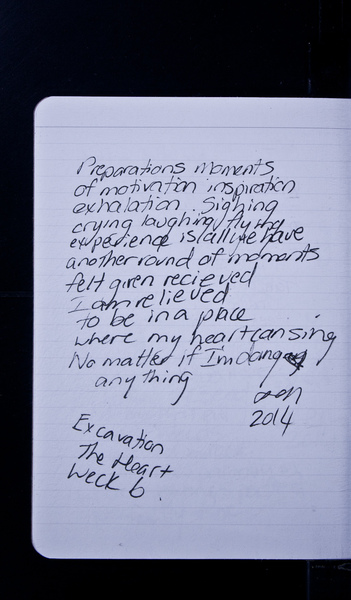 Preparations moments
of motivation inspiration
exhalation. Sighing
crying laughing/flying
experience is all we have
another round of moments
felt given recieved
I am relieved
to be in a place
where my heart can sing
No matter if I'm
anything
2014
Excavation
The Heart
Week 6.